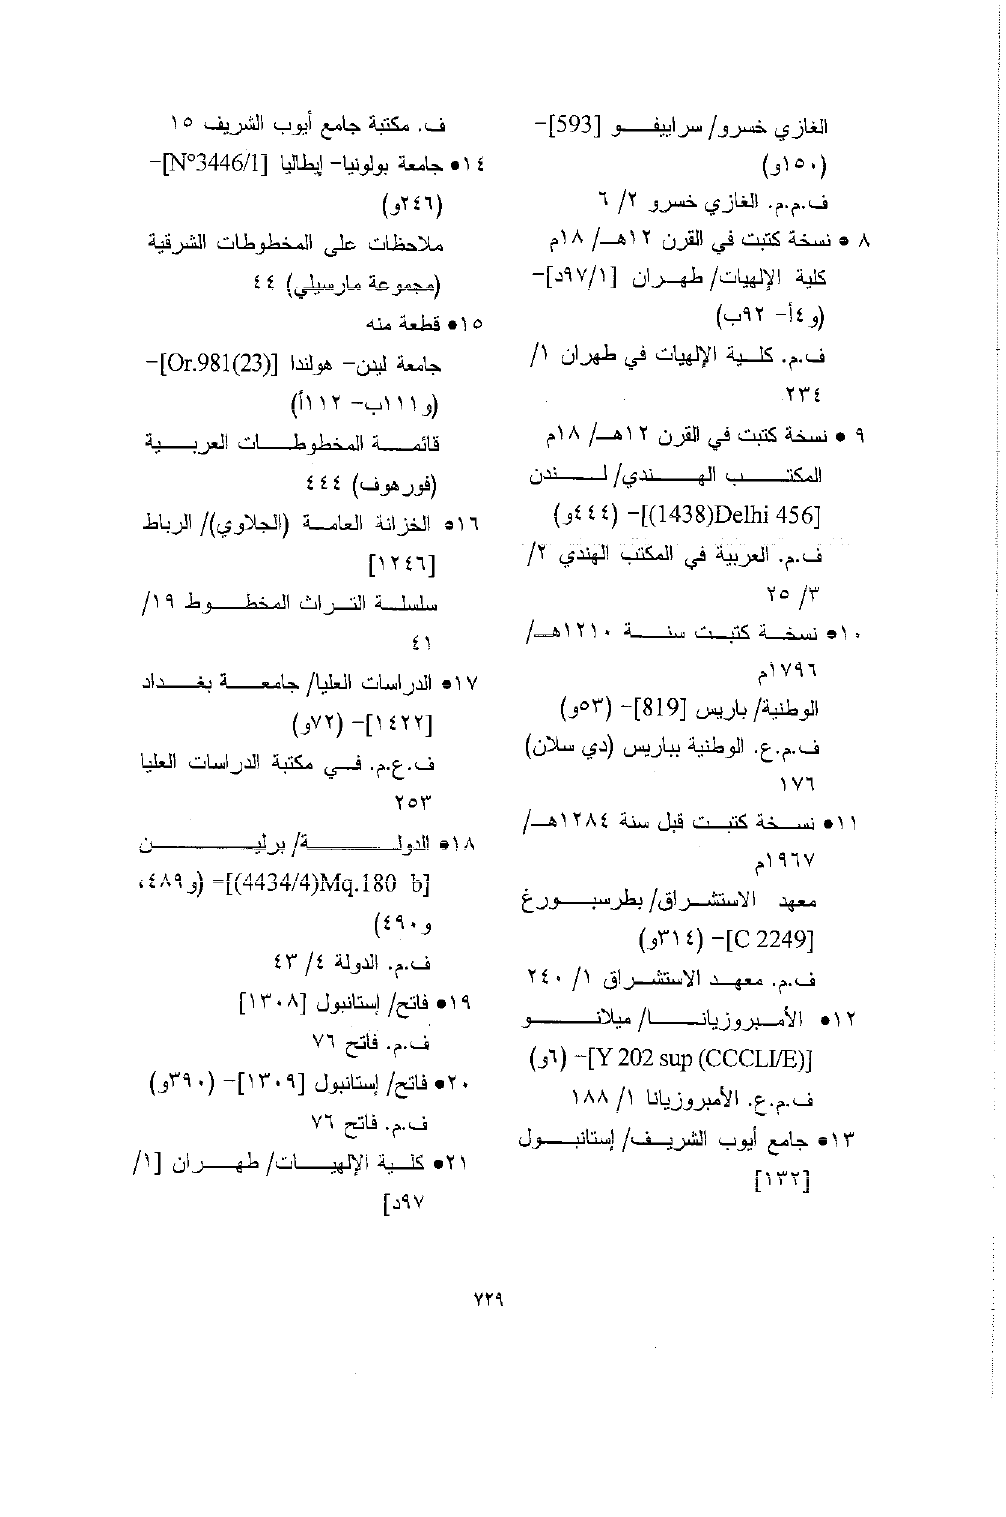 الغازي خسرو/ سراييفو [593]-
(١٥٠و)
ف.م.م. الغازي خسرو ٢/ ٦
٨ • نسخة كتبت في القرن ١٢هـ/ ١٨م
كلية الإلهيات/ طهران [٩٧/١د]-
(و٤أ- ٩٢ب)
ف.م. كلية الإلهيات في طهران ١/
٢٣٤
٩ • نسخة كتبت في القرن ١٢هـ/ ١٨م
المكتب الهندي/ لندن
[(1438)Delhi 456]- (٤٤٤و)
ف.م. العربية في المكتب الهندي ٢/
٣/ ٢٥
١٠• نسخة كتبت سنة ١٢١٠هـ/
١٧٩٦م
الوطنية/ باريس [819]- (٥٣و)
ف.م.ع. الوطنية بباريس (دي سلان)
١٧٦
١١• نسخة كتبت قبل سنة ١٢٨٤هـ/
١٩٦٧م
معهد الاستشراق/ بطرسبورغ
[C 2249]- (٣١٤و)
ف.م. معهد الاستشراق ١/ ٢٤٠
١٢• الأمبروزيانا/ ميلانو
[Y 202 sup (CCCLI/E)]- (٦و)
ف.م.ع. الأمبروزيانا ١/ ١٨٨
١٣• جامع أيوب الشريف/ إستانبول
[١٣٢]
ف. مكتبة جامع أيوب الشريف ١٥
١٤• جامعة بولونيا- إيطاليا [N°3446/1]-
(٢٤٦و)
ملاحظات على المخطوطات الشرقية
(مجموعة مارسيلي) ٤٤
١٥• قطعة منه
جامعة ليدن- هولندا [Or.981(23)]-
(و١١١ب- ١١٢أ)
قائمة المخطوطات العربية
(فورهوف) ٤٤٤
١٦• الخزانة العامة (الجلاوي)/ الرباط
[١٢٤٦]
سلسلة التراث المخطوط ١٩/
٤١
١٧• الدراسات العليا/ جامعة بغداد
[١٤٢٢]- (٧٢و)
ف.ع.م. في مكتبة الدراسات العليا
٢٥٣
١٨• الدولة/ برلين
[(4434/4)Mq.180 b]- (و٤٨٩،
و٤٩٠)
ف.م. الدولة ٤/ ٤٣
١٩• فاتح/ إستانبول [١٣٠٨]
ف.م. فاتح ٧٦
٢٠• فاتح/ إستانبول [١٣٠٩]- (٣٩٠و)
ف.م. فاتح ٧٦
٢١• كلية الإلهيات/ طهران [١/
٩٧د]
٧٢٩